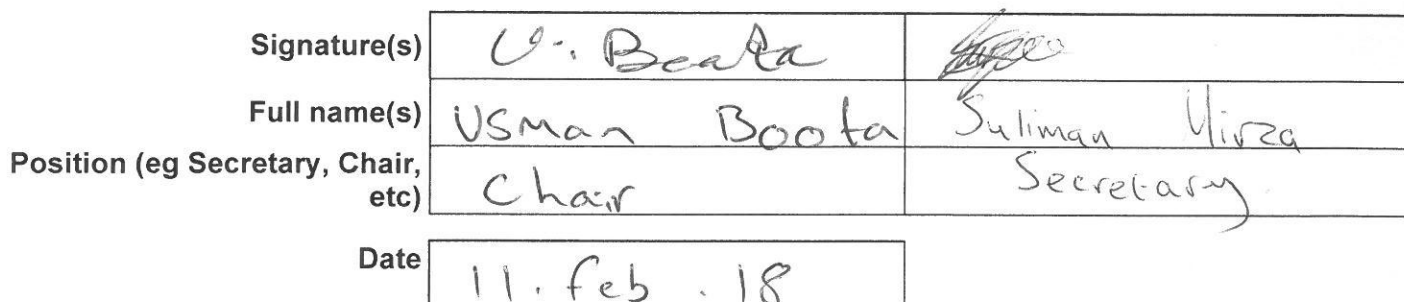 Signature(s) U. Boota
Full name(s) Usman Boota Suliman Mirza
Position (eg Secretary, Chair,
etc) Chair Secretary
Date 11. feb . 18